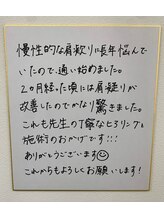 慢性的な肩凝りに長年悩んで
いたので、通い始めました。
2ヶ月経った頃には肩凝りが
改善したのでかなり驚きました。
これも先生の丁寧なヒアリングと
施術のおかげです!!!
ありがとうございます☺
これからもよろしくお願いします!